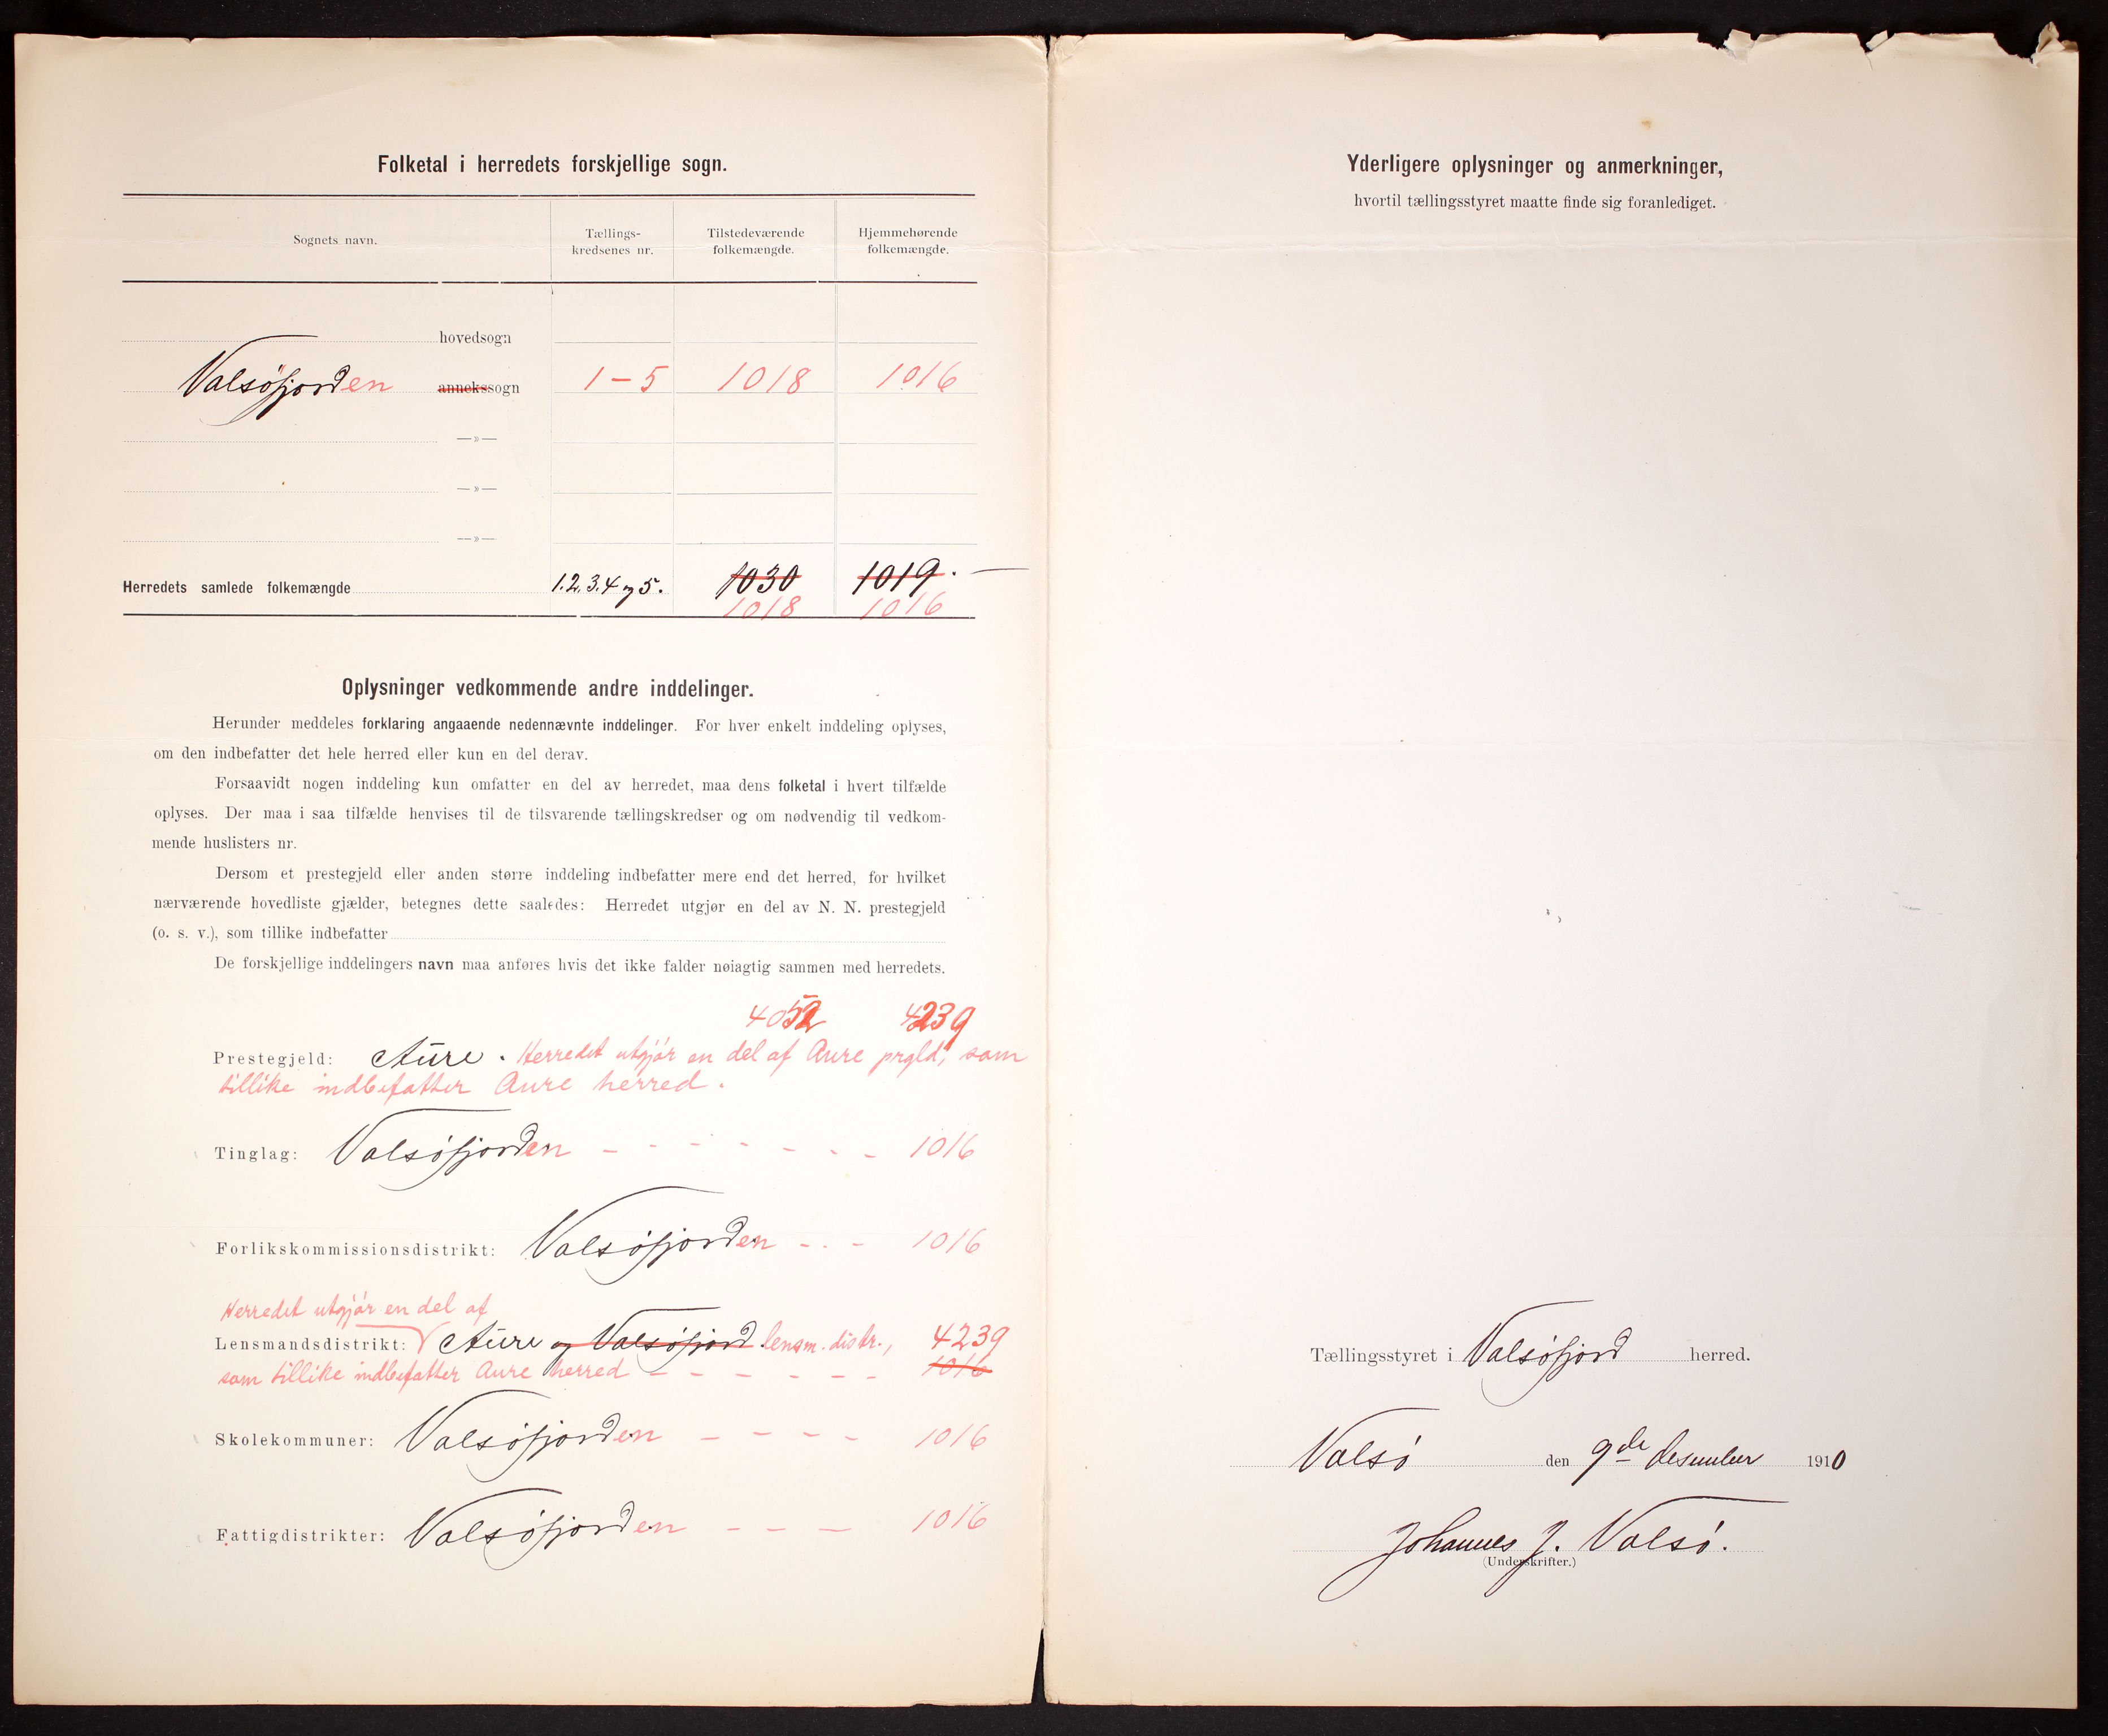 Folketal i herredets forskjellige sogn.
Sognets navn. Tællings-kredsenes nr. Tilstedeværende folkemængde. Hjemmehørende folkemængde.
hovedsogn
Valsöfjorden annekssogn 1-5 1018 1016
—»—
—»—
—»—
Herredets samlede folkemængde 1.2.3.4 og 5. 1030 1019.
1018 1016
Oplysninger vedkommende andre inddelinger.
Herunder meddeles forklaring angaaende nedennævnte inddelinger. For hver enkelt inddeling oplyses,
om den indbefatter det hele herred eller kun en del derav.
Forsaavidt nogen inddeling kun omfatter en del av herredet, maa dens folketal i hvert tilfælde
oplyses. Der maa i saa tilfælde henvises til de tilsvarende tællingskredser og om nødvendig til vedkom-
mende huslisters nr.
Dersom et prestegjeld eller anden større inddeling indbefatter mere end det herred, for hvilket
nærværende hovedliste gjælder, betegnes dette saaledes: Herredet utgjør en del av N. N. prestegjeld
(o. s. v.), som tillike indbefatter
De forskjellige inddelingers navn maa anføres hvis det ikke falder nøiagtig sammen med herredets.
4052 4239
Prestegjeld: Aure. Herredet utgjör en del af Aure prgld, som
tillike indbefatter Aure herred.
Tinglag: Valsöfjorden - - - - - - - 1016
Forlikskommissionsdistrikt: Valsöfjorden - - - 1016
Herredet utgjör en del af
Lensmandsdistrikt: Aure og Valsöfjord lensm. distr., 4239
som tillike indbefatter Aure herred - - - - - - 1016
Skolekommuner: Valsöfjorden - - - - 1016
Fattigdistrikter: Valsöfjorden - - - 1016
Yderligere oplysninger og anmerkninger,
hvortil tællingsstyret maatte finde sig foranlediget.
Tællingsstyret i Valsöfjord herred.
Valsö den 9de desember 1910
Johannes J. Valsö.
(Underskrifter.)